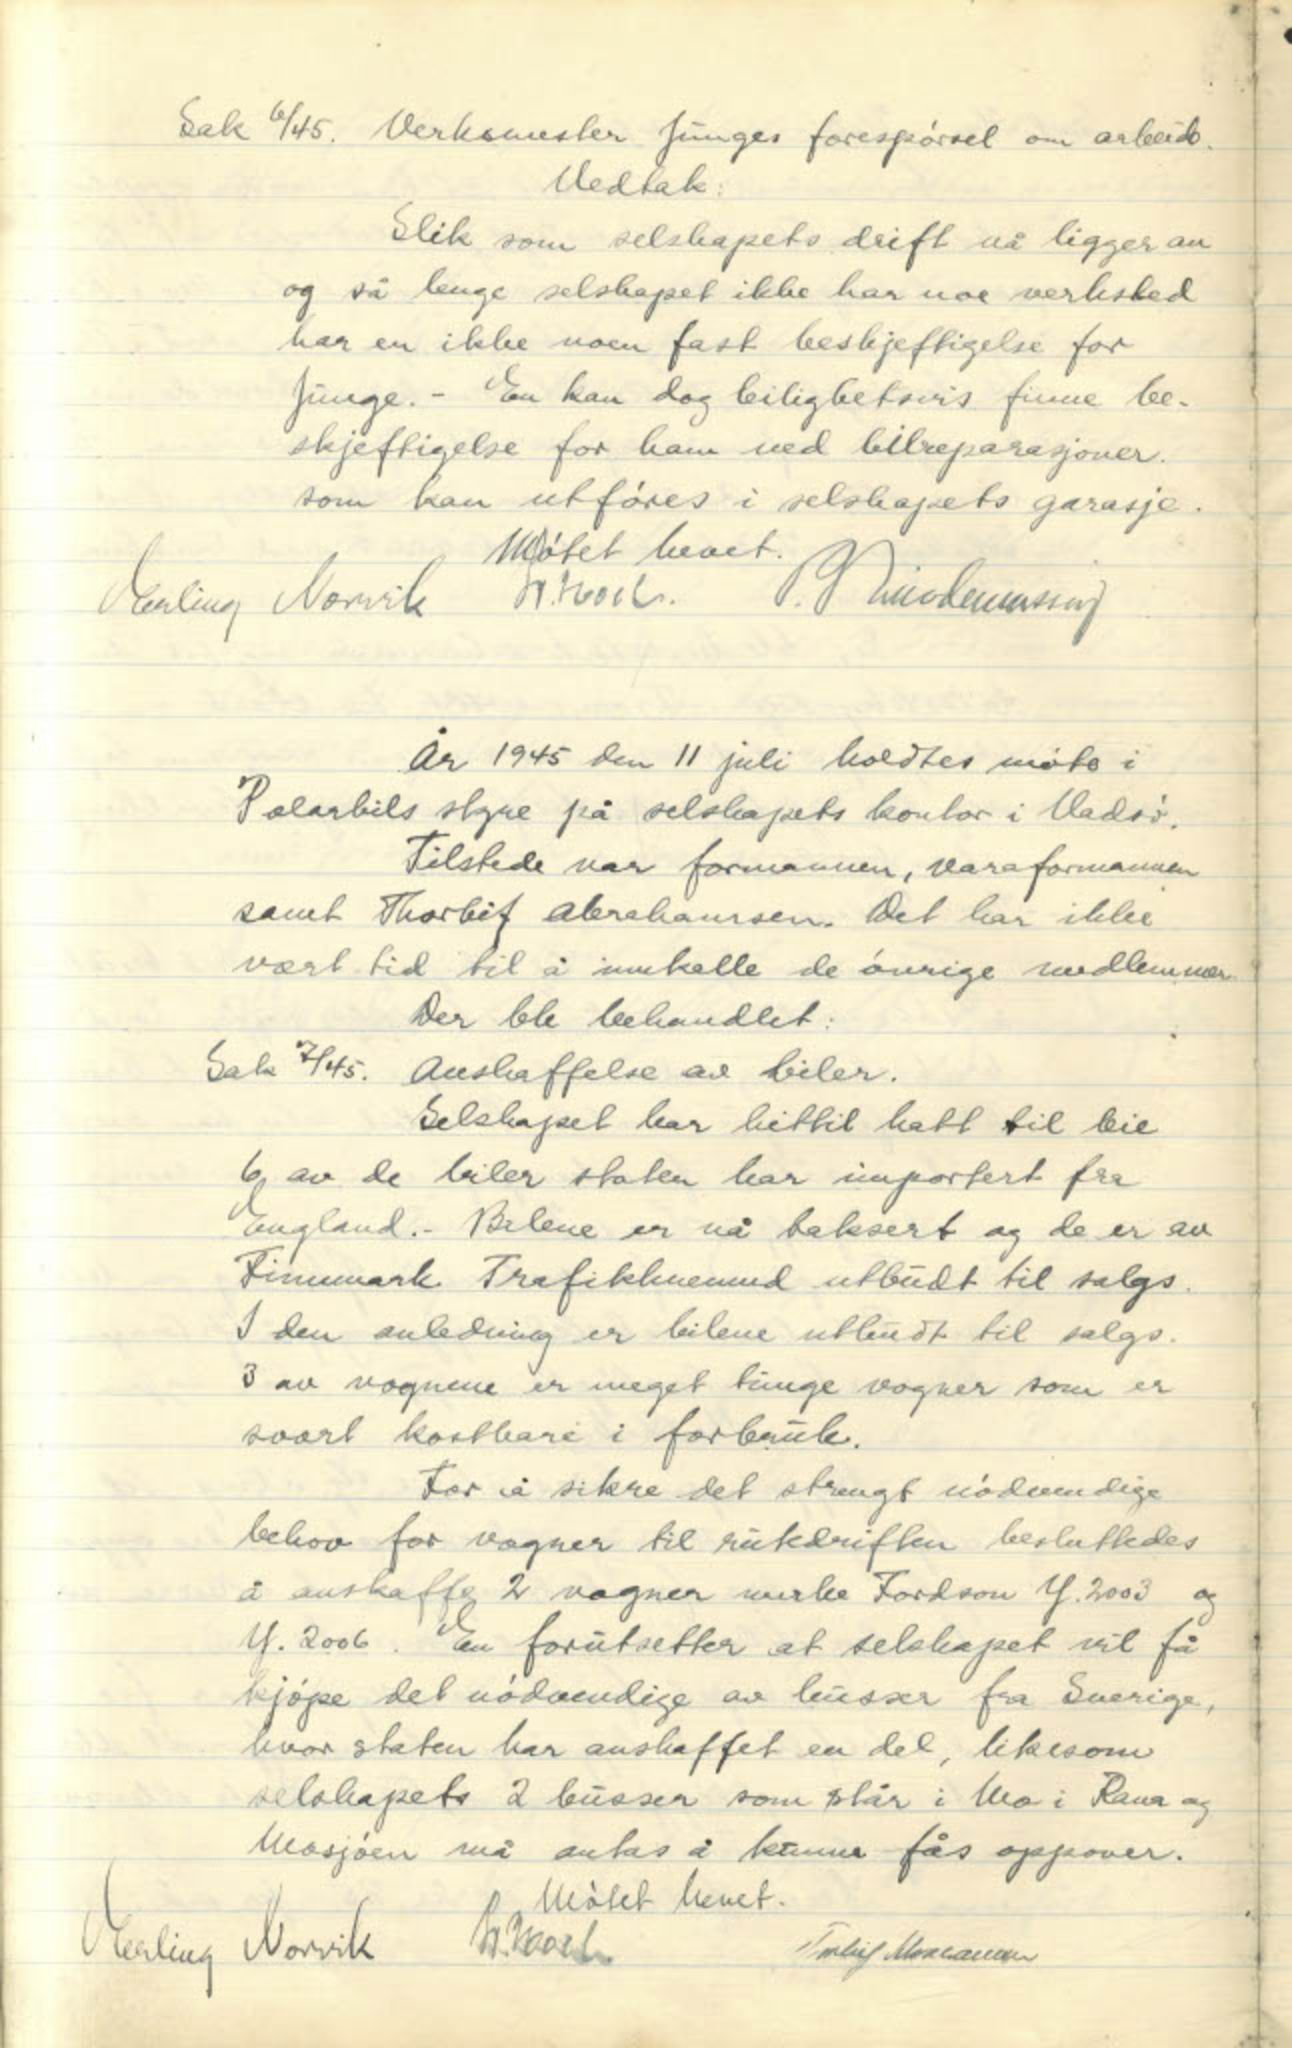 Sak 6/45. Verksmester Junges forespørsel om arbeide.
Vedtak:
Slik som selskapets drift nå ligger an
og så lenge selskapet ikke har noe verksted
har en ikke noen fast beskjeftigelse for
Junge. - En kan dog leilighetsvis finne be-
skjeftigelse for ham ved bilreparasjoner.
som kan utføres i selskapets garasje.
Møtet hevet.
Erling Norvik H. Koch.
År 1945 den 11 juli holdtes møte i
Polarbils styre på selskapets kontor i Vadsø.
Tilstede var formannen, varaformannen
samt Thorleif Abrahamsen. Det har ikke
vært tid til å innkalle de øvrige medlemmer.
Der ble behandlet:
Sak 7/45. Anskaffelse av biler.
Selskapet har hittil hatt til leie
6 av de biler staten har importert fra
England. - Bilene er nå taksert og de er av
Finnmark Trafikknemnd utbudt til salgs.
I den anledning er bilene utbudt til salgs.
3 av vognene er meget tunge vogner som er
svært kostbare i forbruk.
For å sikre det strengt nødvendige
behov for vogner til rutedriften besluttedes
å anskaffe 2 vogner merke Fordson Y. 2003 og
Y. 2006. En forutsetter at selskapet vil få
kjøpe det nødvendige av busser fra Sverige,
hvor staten har anskaffet en del, likesom
selskapets 2 busser som står i Mo i Rana og
Mosjøen må antas å kunne fås oppover.
Møtet hevet.
Erling Norvik H. Koch. Thorleif Abrahamsen